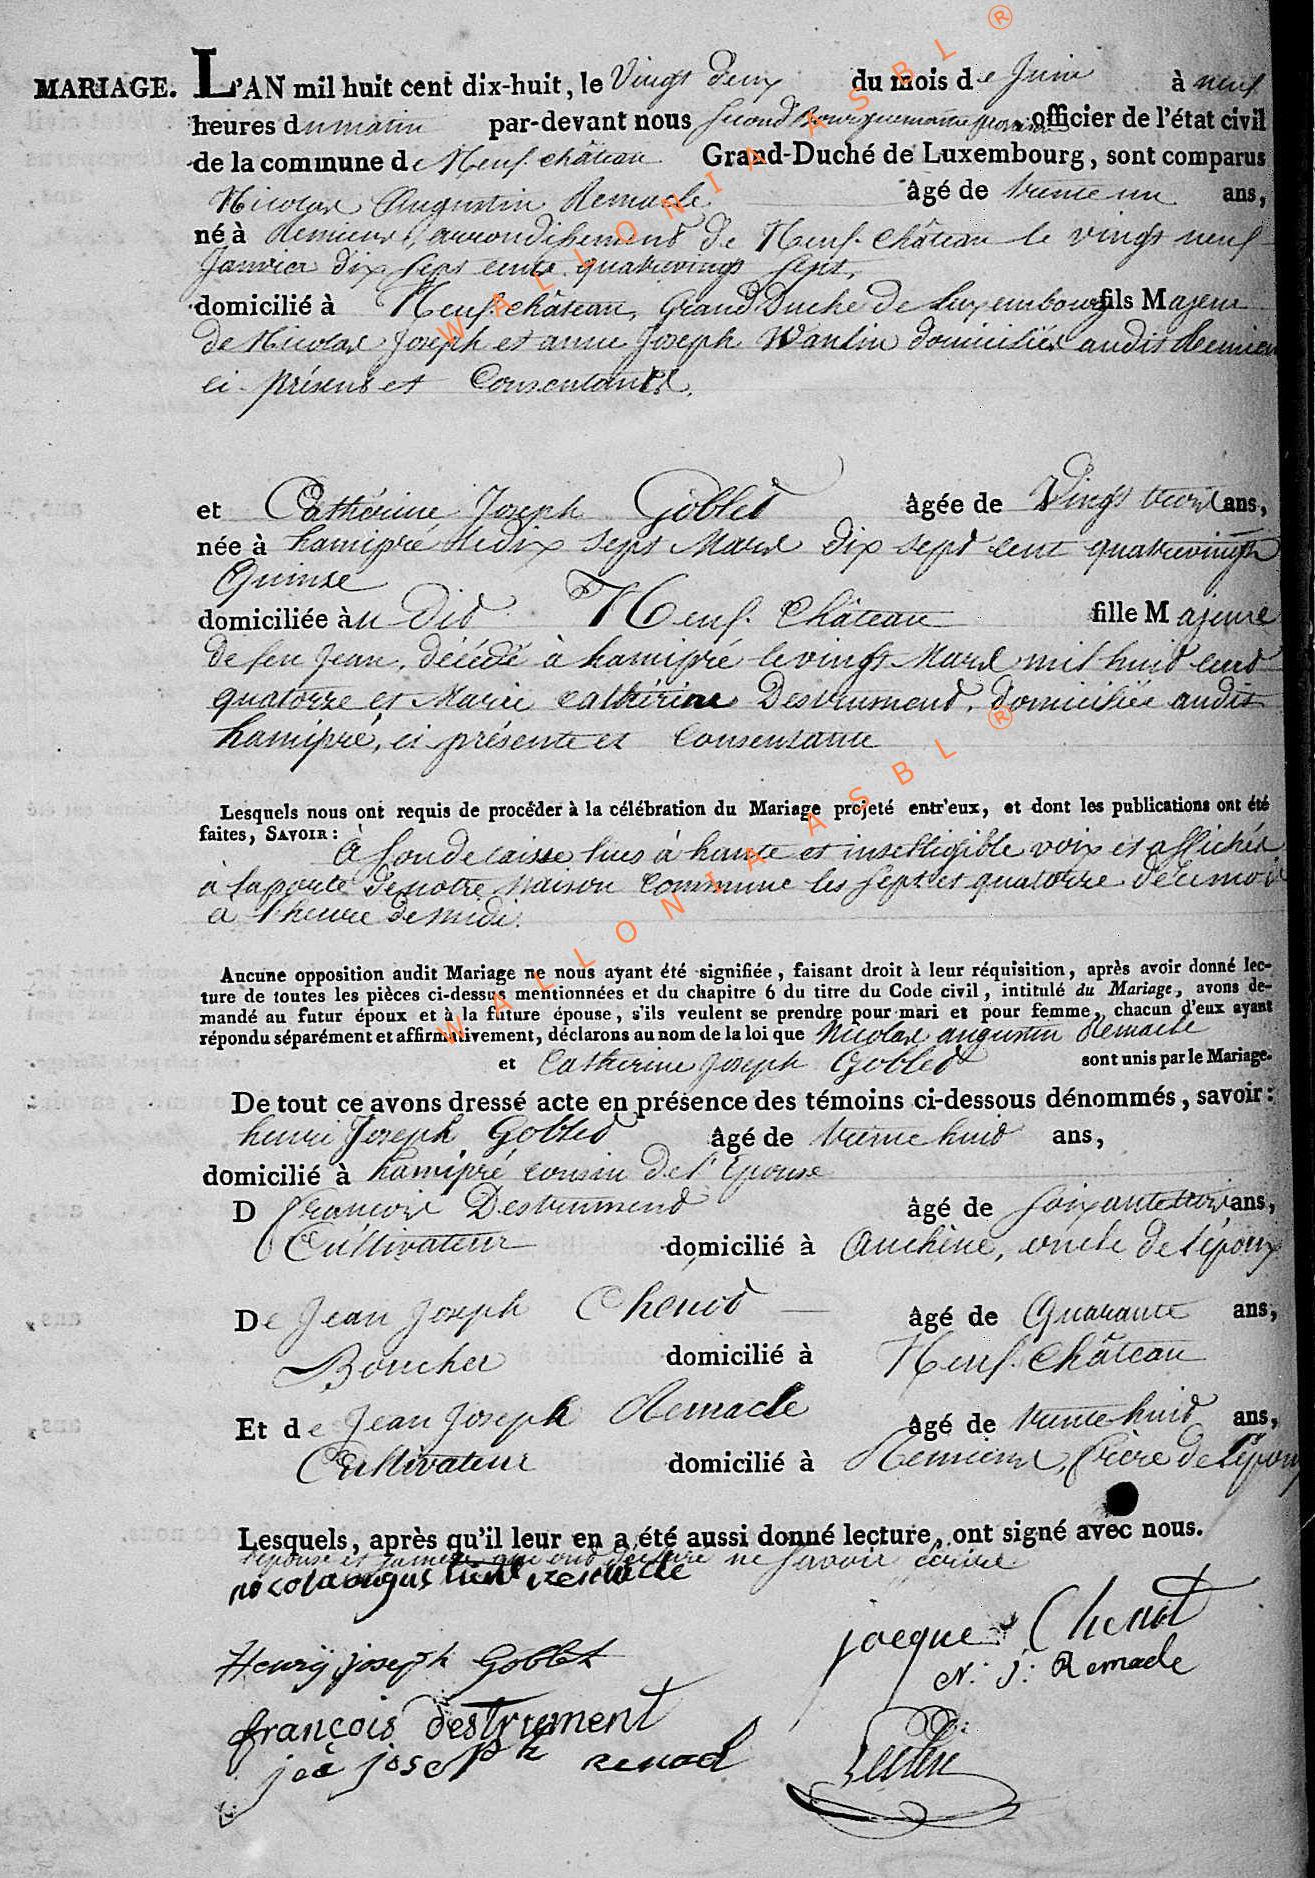 MARIAGE. L'AN mil huit cent dix-huit, le Vingt deux du mois de Juin à neuf
heures du matin par-devant nous second Bourguemaitre officier de l'état civil
de la commune de Neuf-château Grand-Duché de Luxembourg, sont comparus
Nicolas Augustin Remacle âgé de trente un ans,
né à Remieux, arrondissement de Neuf-Château le vingt neuf
Janvier dix sept cents quatrevingt sept,
domicilié à Neuf-château, Grand Duché de Luxembourg fils Majeur
de Nicolas Joseph et anne Joseph Wanlin domiciliés audit
ci-présens et Consentants.
et Cathérine Joseph Goblet âgée de Vingt trois ans,
née à hamipré le dix sept Mars dix sept cent quatrevingts
Quinze
domiciliée à u dit Neuf-Château fille Majeure
de feu Jean, décédé à hamipré le vingt Mars mil huit cent
quatorze et Marie Cathérine Destrument, domiciliée audit
hamipré, ci présente et Consentante
Lesquels nous ont requis de procéder à la célébration du Mariage projeté entr'eux, et dont les publications ont été
faites, SAVOIR :
à son de caisse lues à haute et intelligible voix et affichés
à la porte de notre Maison Commune les sept et quatorze de ce mois
à l'heure de midi.
Aucune opposition audit Mariage ne nous ayant été signifiée, faisant droit à leur réquisition, après avoir donné lec-
ture de toutes les pièces ci-dessus mentionnées et du chapitre 6 du titre du Code civil, intitulé du Mariage, avons de-
mandé au futur époux et à la future épouse, s'ils veulent se prendre pour mari et pour femme, chacun d'eux ayant
répondu séparément et affirmativement, déclarons au nom de la loi que Nicolas augustin Remacle
et Catherine Joseph Goblet sont unis par le Mariage.
De tout ce avons dressé acte en présence des témoins ci-dessous dénommés, savoir :
henri Joseph Goblet âgé de trente huit ans,
domicilié à hamipré cousin de l'Epouse
D François Destrument âgé de soixante trois ans,
Cultivateur domicilié à Auchène, oncle de l'époux
De Jean Joseph Chenot âgé de Quarante ans,
Boucher domicilié à Neuf-Château
Et de Jean Joseph Remacle âgé de trente huit ans,
Cultivateur domicilié à frère de l'époux
Lesquels, après qu'il leur en a été aussi donné lecture, ont signé avec nous.
l'épouse et sa mère qui ont déclaré ne savoir écrire
nicolas augustin remacle
jacque Chenot
Henry joseph Goblet
N. J. Remacle
françois destrument
joseph
WALLONIA ASBL ®
WALLONIA ASBL ®